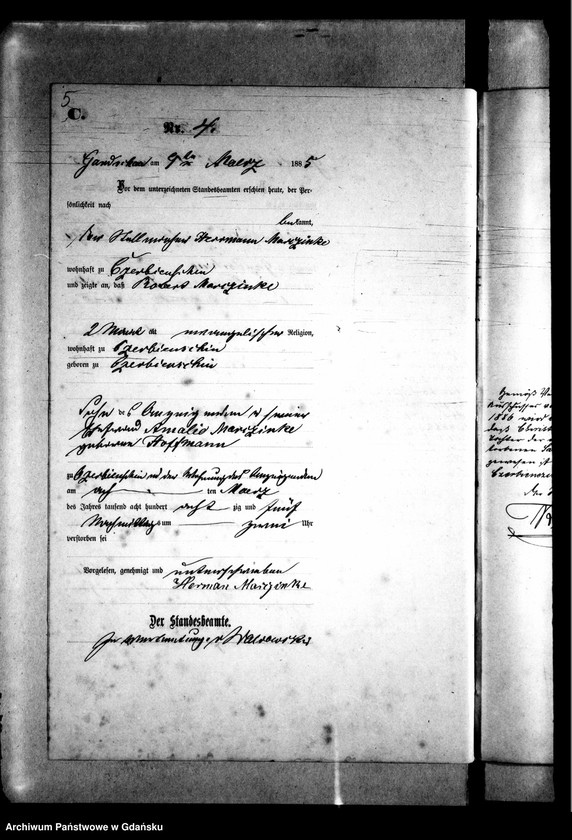 5
C.
Nr. 4.
am 9ten Maerz 1885
Vor dem unterzeichneten Standesbeamten erschien heute, der Per-
sönlichkeit nach
bekannt,
der Stellmacher Herrmann Marczinke
wohnhaft zu Czerbienschin
und zeigte an, daß Robert Marczinke
2 Monat alt evangelischer Religion,
wohnhaft zu Czerbienschin
geboren zu Czerbienschin
Sohn des Anzeigenden u seiner
Ehefrau Amalie Marczinke
geborene Hoffmann
zu Czerbienschin in der Wohnung des Anzeigenden
am acht ten Maerz
des Jahres tausend acht hundert acht zig und fünf
Nachmittags um zwei Uhr
verstorben sei
Vorgelesen, genehmigt und unterschrieben
Herman Marczinke
Der Standesbeamte.
In Vertretung
Gemäß
1886 wird
daß
Tochter der
gewesen ist
Archiwum Państwowe w Gdańsku